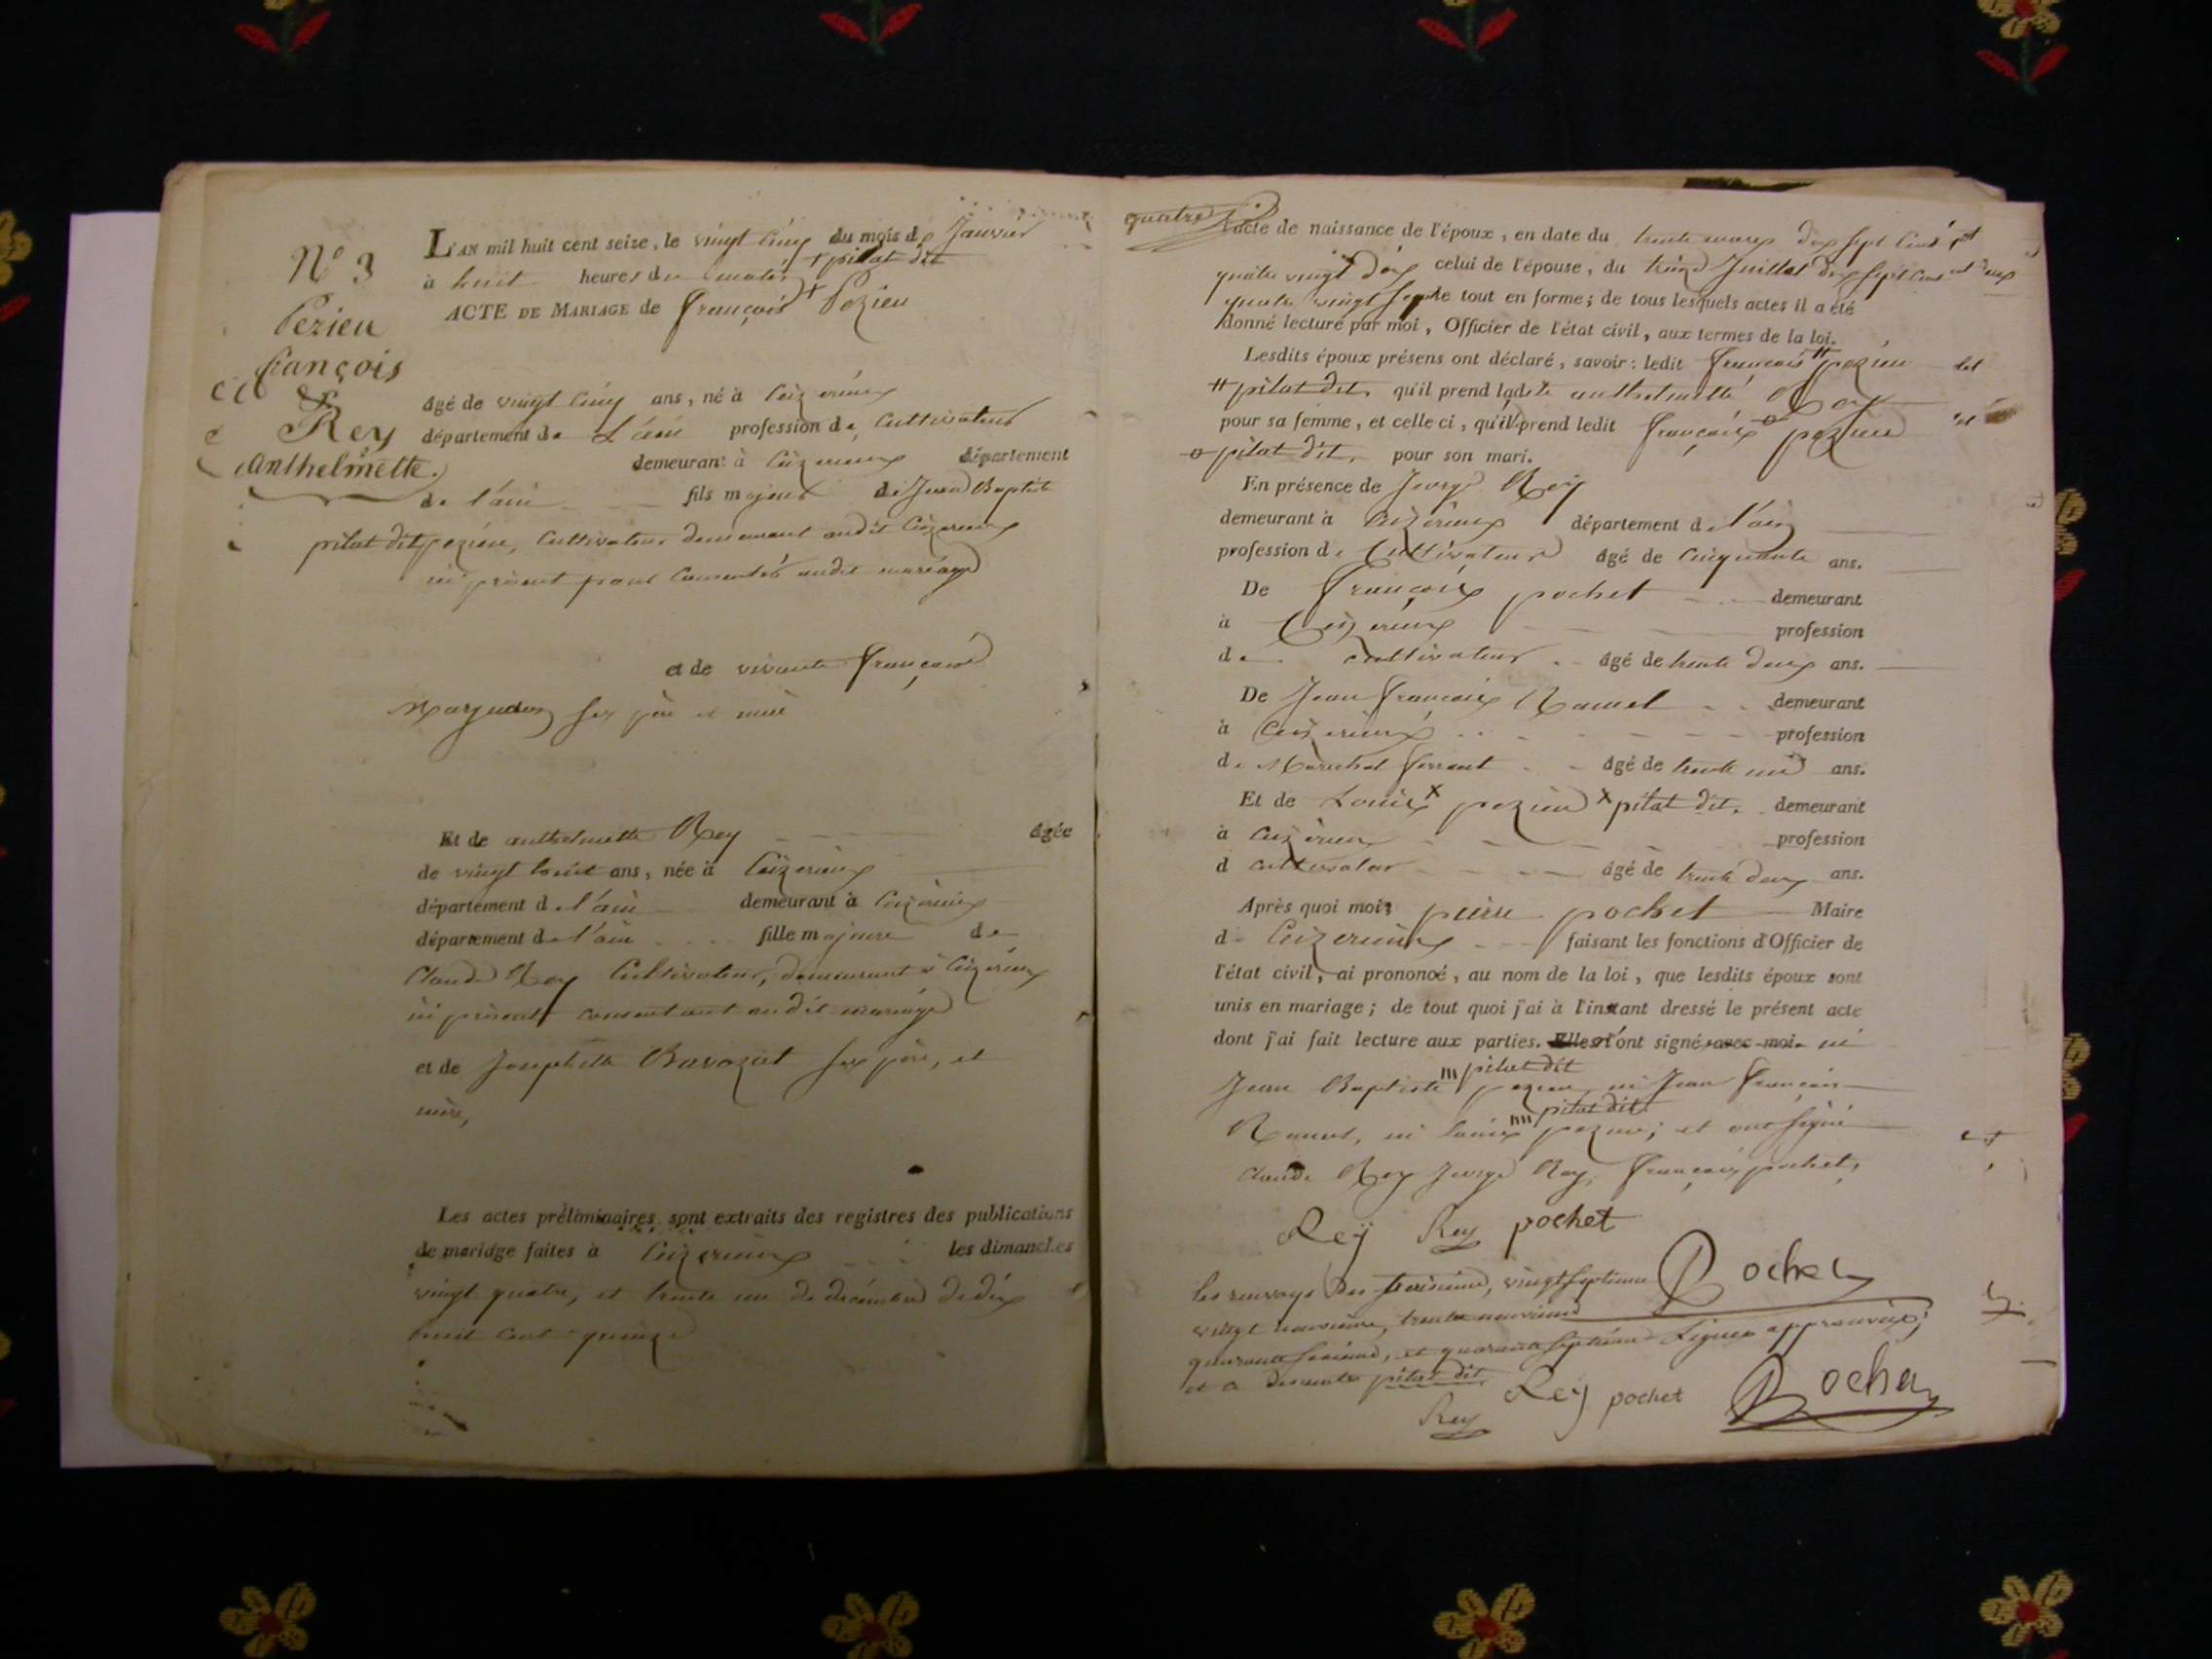 N° 3
Pezieu
françois
et
Rey
Anthelmette.
L'AN mil huit cent seize, le vingt cinq du mois de Janvier
à huit heures du matin + pilat dit
ACTE DE MARIAGE de françois + Pezieu
âgé de vingt cinq ans, né à Ceizerieux
département de L'ain profession de Cultivateur
demeurant à Ceizerieux département
de l'ain fils majeur de Jean Baptiste
pilat dit pezieu, Cultivateur demeurant audit Ceizerieux
ici présent pour consentir audit mariage
et de vivante françoise
ses père et mère
Et de anthelmette Rey âgée
de vingt huit ans, née à Ceizerieux
département de l'ain demeurant à Ceizerieux
département de l'ain fille majeure de
Claude Rey Cultivateur, demeurant à Ceizerieux
ici présent consentant audit mariage
et de Josephette Bavozat ses père, et
mère,
Les actes préliminaires sont extraits des registres des publications
de mariage faites à Ceizerieux les dimanches
vingt quatre, et trente un de décembre de dix
huit cent quinze
quatre
l'acte de naissance de l'époux, en date du trente mars dix sept cent
quatre vingt dix celui de l'épouse, du treize Juillet dix sept cent
quatre vingt sept le tout en forme; de tous lesquels actes il a été
donné lecture par moi, Officier de l'état civil, aux termes de la loi.
Lesdits époux présens ont déclaré, savoir: ledit françois # pezieu
# pilat dit, qu'il prend ladite anthelmette Rey
pour sa femme, et celle ci, qu'il prend ledit françois o pezieu
o pilat dit, pour son mari.
En présence de George Rey
demeurant à Ceizerieux département de l'ain
profession de Cultivateur âgé de cinquante ans.
De françois pochet demeurant
à Ceizerieux profession
de cultivateur âgé de trente deux ans.
De Jean françois Ramel demeurant
à Ceizerieux profession
de Marechal ferrant âgé de trente un ans.
Et de Louis x pezieu x pilat dit, demeurant
à Ceizerieux profession
d cultivateur âgé de trente deux ans.
Après quoi moi, pierre pochet Maire
de Ceizerieux faisant les fonctions d'Officier de
l'état civil, ai prononcé, au nom de la loi, que lesdits époux sont
unis en mariage; de tout quoi j'ai à l'instant dressé le présent acte
dont j'ai fait lecture aux parties. Elles n'ont signé avec moi ni
pilat dit
Jean Baptiste pezieu, ni Jean françois
pilat dit
Ramel, ni Louis pezieu; et ont signé
Claude Rey George Rey, françois pochet,
Reÿ Rey pochet
les renvoys des troisieme, vingt septieme Pochet
vingt neuvieme, trente neuvieme
et quarante septieme Lignes approuvés;
pilat dit
Reÿ pochet Pochet
Rey